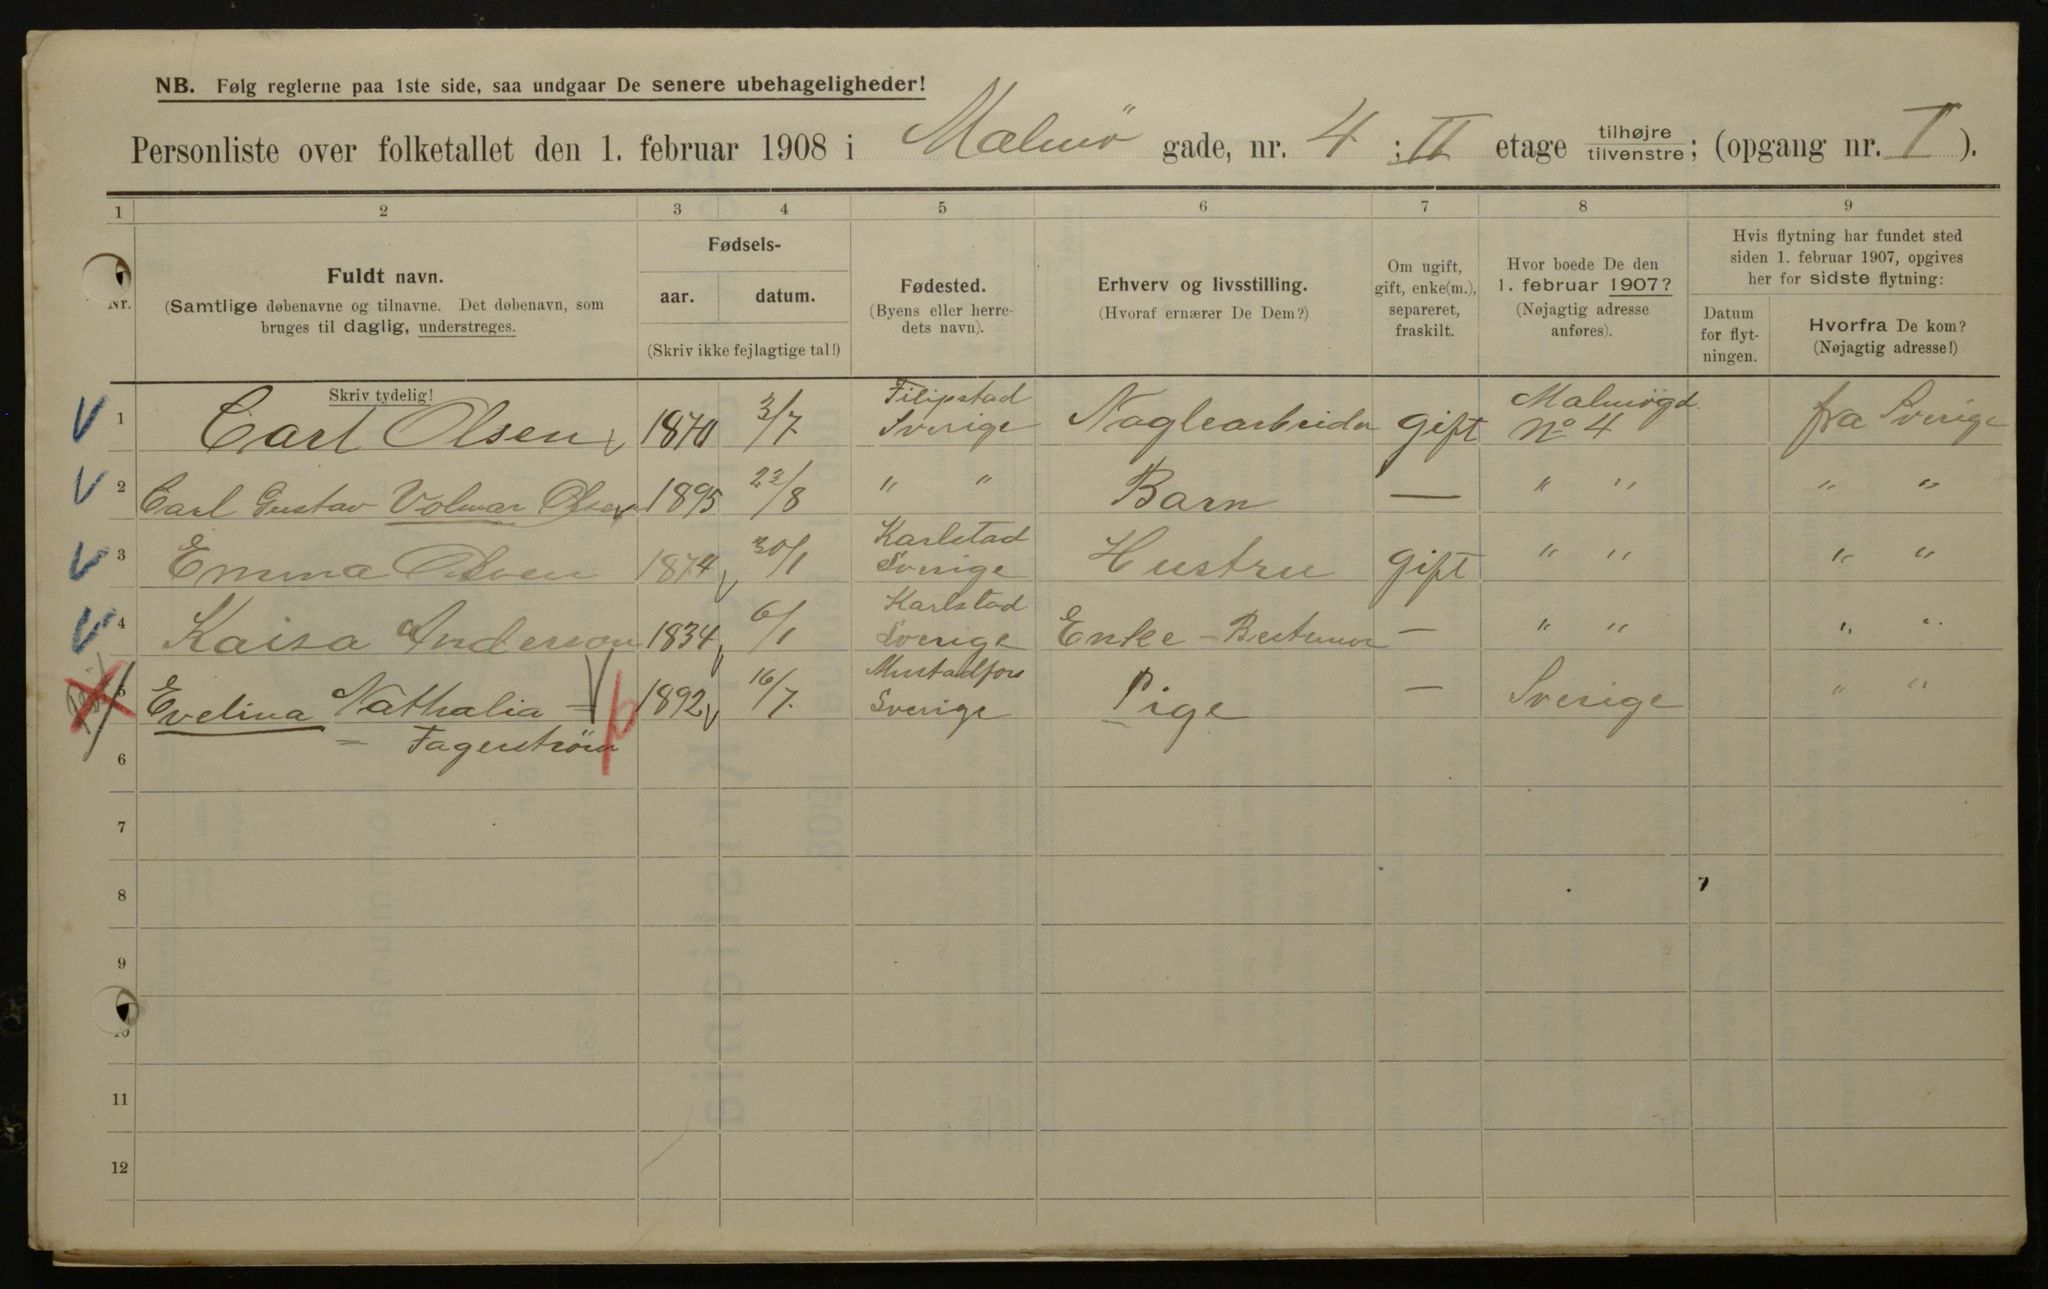 NB. Følg reglerne paa 1ste side, saa undgaar De senere ubehageligheder!
Personliste over folketallet den 1. februar 1908 i Malmö gade, nr. 4 ; II etage tilhøjre tilvenstre; (opgang nr. I ).
1 2 3 4 5 6 7 8 9
Nr.
Fuldt navn.
(Samtlige døbenavne og tilnavne. Det døbenavn, som
bruges til daglig, understreges.
Skriv tydelig!
Fødsels-
aar. datum.
(Skriv ikke fejlagtige tal!)
Fødested.
(Byens eller herre-
dets navn).
Erhverv og livsstilling.
(Hvoraf ernærer De Dem?)
Om ugift,
gift, enke(m.),
separeret,
fraskilt.
Hvor boede De den
1. februar 1907?
(Nøjagtig adresse
anføres).
Hvis flytning har fundet sted
siden 1. februar 1907, opgives
her for sidste flytning:
Datum
for flyt-
ningen.
Hvorfra De kom?
(Nøjagtig adresse!)
Filipstad Malmögd.
1 Carl Olsen 1870 3/7 Sverige Naglearbeider gift No 4 fra Sverige
2 Carl Gustav Volmar Olsen 1895 22/8 " " Barn — " " " "
Karlstad
3 Emma Olsen 1874 30/1 Sverige Hustru gift " " " "
Karlstad
4 Kaisa Anderson 1834 6/1 Sverige Enke - Bestemor — " " " "
Mustadfors
5 Evelina Nathalia - 1892 16/7 Sverige Pige — Sverige " "
- Fagerström
6
7
8
9
10
11
12